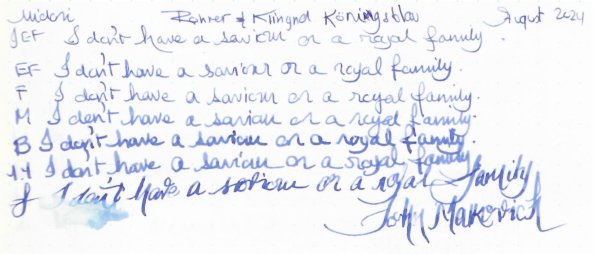 Midori Rohrer & Klingnd Köningsblau August 2024
JEF I don't have a saviour or a royal family.
EF I don't have a saviour or a royal family.
F I don't have a saviour or a royal family.
M I don't have a saviour or a royal family.
B I don't have a saviour or a royal family.
1.1 I don't have a saviour or a royal family
f I don't have a saviour or a royal Family
John Malkovich